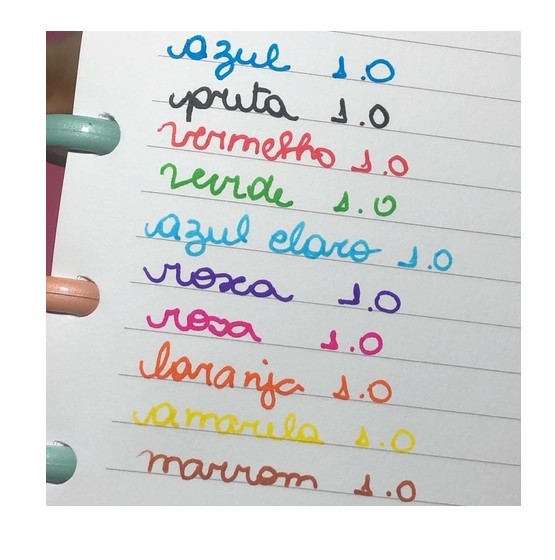 azul 1.0
preta 1.0
vermelho 1.0
verde 1.0
azul claro 1.0
roxa 1.0
rosa 1.0
laranja 1.0
amarelo 1.0
marrom 1.0